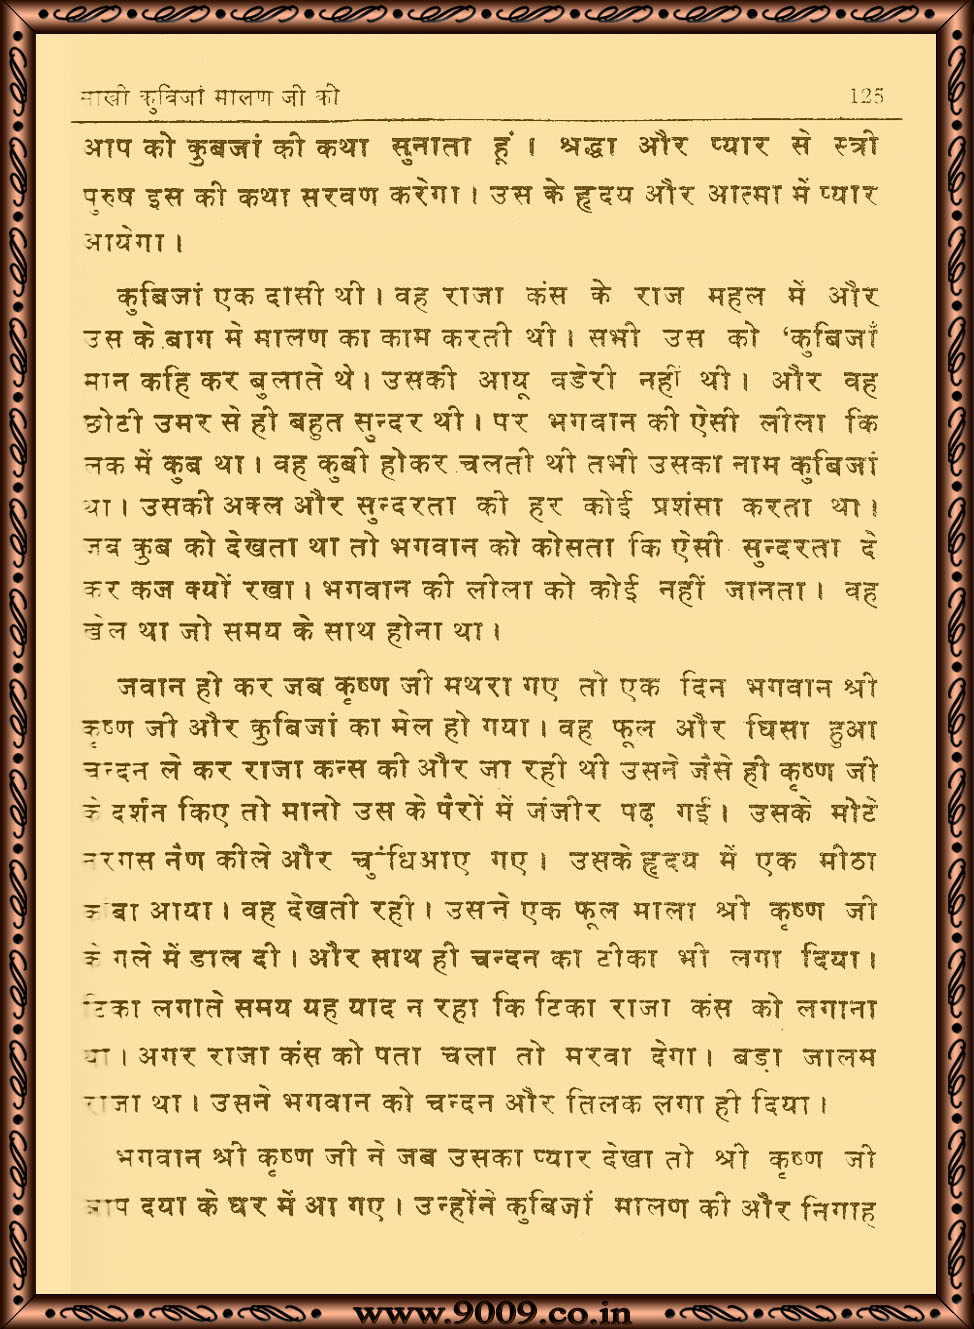 साखी कुविजां मालण जी की 125
आप को कुबजां की कथा सुनाता हूं । श्रद्धा और प्यार से स्त्री
पुरुष इस की कथा सरवण करेगा । उस के हृदय और आत्मा में प्यार
आयेगा ।
कुबिजां एक दासी थी । वह राजा कंस के राज महल में और
उस के बाग मे मालण का काम करती थी । सभी उस को ‘कुबिजाँ
मान कहि कर बुलाते थे । उसकी आयू वडेरी नहीं थी । और वह
छोटी उमर से ही बहुत सुन्दर थी । पर भगवान की ऐसी लीला कि
लक में कुब था । वह कुबी होकर चलती थी तभी उसका नाम कुबिजां
था । उसकी अक्ल और सुन्दरता की हर कोई प्रशंसा करता था ।
जब कुब को देखता था तो भगवान को कोसता कि ऐसी सुन्दरता दे
कर कज क्यों रखा । भगवान की लीला को कोई नहीं जानता । वह
खेल था जो समय के साथ होना था ।
जवान हो कर जब कृष्ण जी मथरा गए तो एक दिन भगवान श्री
कृष्ण जी और कुबिजां का मेल हो गया । वह फूल और घिसा हुआ
चन्दन ले कर राजा कन्स की और जा रही थी उसने जैसे ही कृष्ण जी
के दर्शन किए तो मानो उस के पैरों में जंजीर पढ़ गई । उसके मोटे
नरगस नैण कीले और चुंधिआए गए । उसके हृदय में एक मीठा
आया । वह देखती रही । उसने एक फूल माला श्री कृष्ण जी
के गले में डाल दी । और साथ ही चन्दन का टीका भी लगा दिया ।
टिका लगाते समय यह याद न रहा कि टिका राजा कंस को लगाना
था । अगर राजा कंस को पता चला तो मरवा देगा । बड़ा जालम
राजा था । उसने भगवान को चन्दन और तिलक लगा ही दिया ।
भगवान श्री कृष्ण जी ने जब उसका प्यार देखा तो श्री कृष्ण जी
आप दया के घर में आ गए । उन्होंने कुबिजां मालण की और निगाह
www.9009.co.in